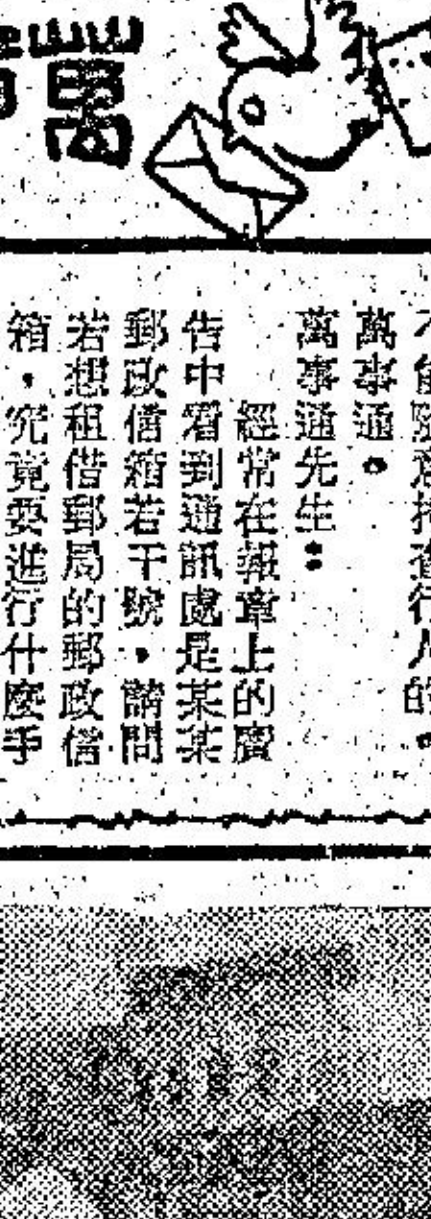 萬
萬事通。
萬事通先生：
經常在報章上的廣
告中看到通訊處是某某
郵政信箱若干號，請問
若想租借郵局的郵政信
箱，究竟要進行什麼手